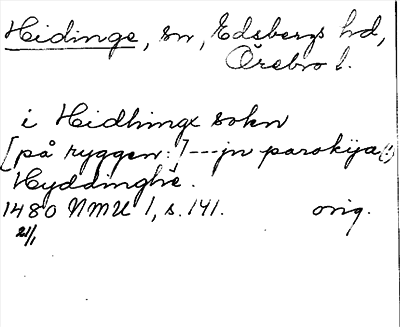 Hidinge, sn, Edsbergs hd,
Örebro l.
i Hidhinge sokn
[på ryggen:] --- jn parokija (!)
Hyddinghe.
1480 NMU 1, s. 141. orig.
21/1